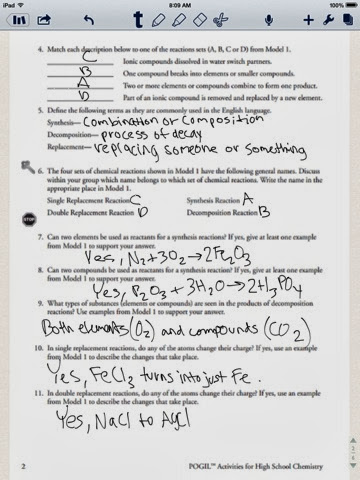 iPad
8:09 AM
99%
4. Match each description below to one of the reactions sets (A, B, C or D) from Model 1.
C Ionic compounds dissolved in water switch partners.
B One compound breaks into elements or smaller compounds.
A Two or more elements or compounds combine to form one product.
D Part of an ionic compound is removed and replaced by a new element.
5. Define the following terms as they are commonly used in the English language.
Synthesis— combination or composition
Decomposition— process of decay
Replacement— replacing someone or something
6. The four sets of chemical reactions shown in Model 1 have the following general names. Discuss
within your group which name belongs to which set of chemical reactions. Write the name in the
appropriate place in Model 1.
Single Replacement Reaction C Synthesis Reaction A
Double Replacement Reaction D Decomposition Reaction B
STOP
7. Can two elements be used as reactants for a synthesis reaction? If yes, give at least one example
from Model 1 to support your answer.
Yes, N₂+3O₂→2Fe₂O₃
8. Can two compounds be used as reactants for a synthesis reaction? If yes, give at least one example
from Model 1 to support your answer.
Yes, P₂O₃+3H₂O→2H₃PO₄
9. What types of substances (elements or compounds) are seen in the products of decomposition
reactions? Use examples from Model 1 to support your answer.
Both elements (O₂) and compounds (CO₂)
10. In single replacement reactions, do any of the atoms change their charge? If yes, use an example
from Model 1 to describe the changes that take place.
Yes, FeCl₃ turns into just Fe.
11. In double replacement reactions, do any of the atoms change their charge? If yes, use an example
from Model 1 to describe the changes that take place.
Yes, NaCl to AgCl
2 POGIL™ Activities for High School Chemistry